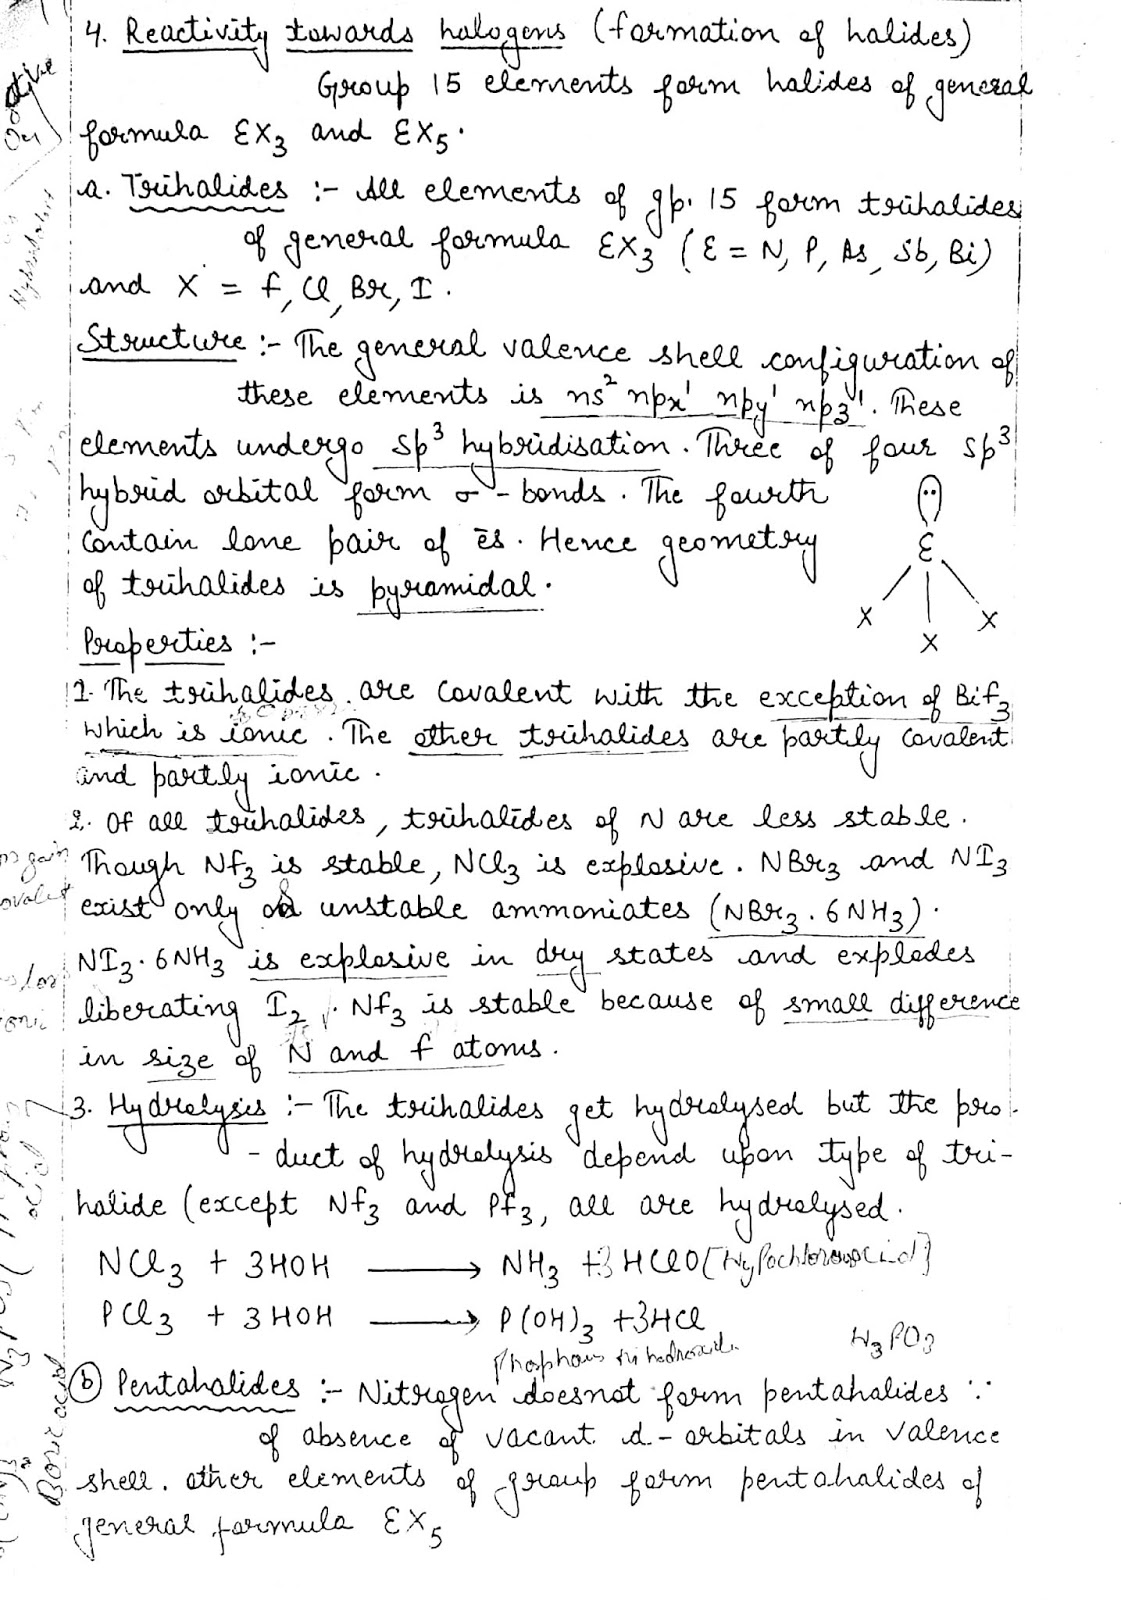 4. Reactivity towards halogens (formation of halides)
Group 15 elements form halides of general
formula EX₃ and EX₅.
a. Trihalides :- All elements of gp. 15 form trihalides
of general formula EX₃ (E = N, P, As, Sb, Bi)
and X = f, Cl, Br, I.
Structure :- The general valence shell configuration of
these elements is ns² npx¹ npy¹ npz¹. These
elements undergo sp³ hybridisation. Three of four sp³
hybrid orbital form σ - bonds. The fourth
contain lone pair of ēs. Hence geometry
of trihalides is pyramidal.
E
X X X
Properties :-
1. The trihalides are covalent with the exception of Bif₃
which is ionic. The other trihalides are partly covalent
and partly ionic.
2. Of all trihalides, trihalides of N are less stable.
Though Nf₃ is stable, NCl₃ is explosive. NBr₃ and NI₃
exist only as unstable ammoniates (NBr₃.6NH₃).
NI₃.6NH₃ is explosive in dry states and explodes
liberating I₂. Nf₃ is stable because of small difference
in size of N and f atoms.
3. Hydrolysis :- The trihalides get hydrolysed but the pro
- duct of hydrolysis depend upon type of tri-
halide (except Nf₃ and Pf₃, all are hydrolysed.
NCl₃ + 3HOH ⟶ NH₃ +3HClO [Hypochlorous acid]
PCl₃ + 3HOH ⟶ P(OH)₃ +3HCl
H₃PO₃
(b) Pentahalides :- Nitrogen doesnot form pentahalides ∵
of absence of vacant d-orbitals in valence
shell. other elements of group form pentahalides of
general formula EX₅
Boric acid